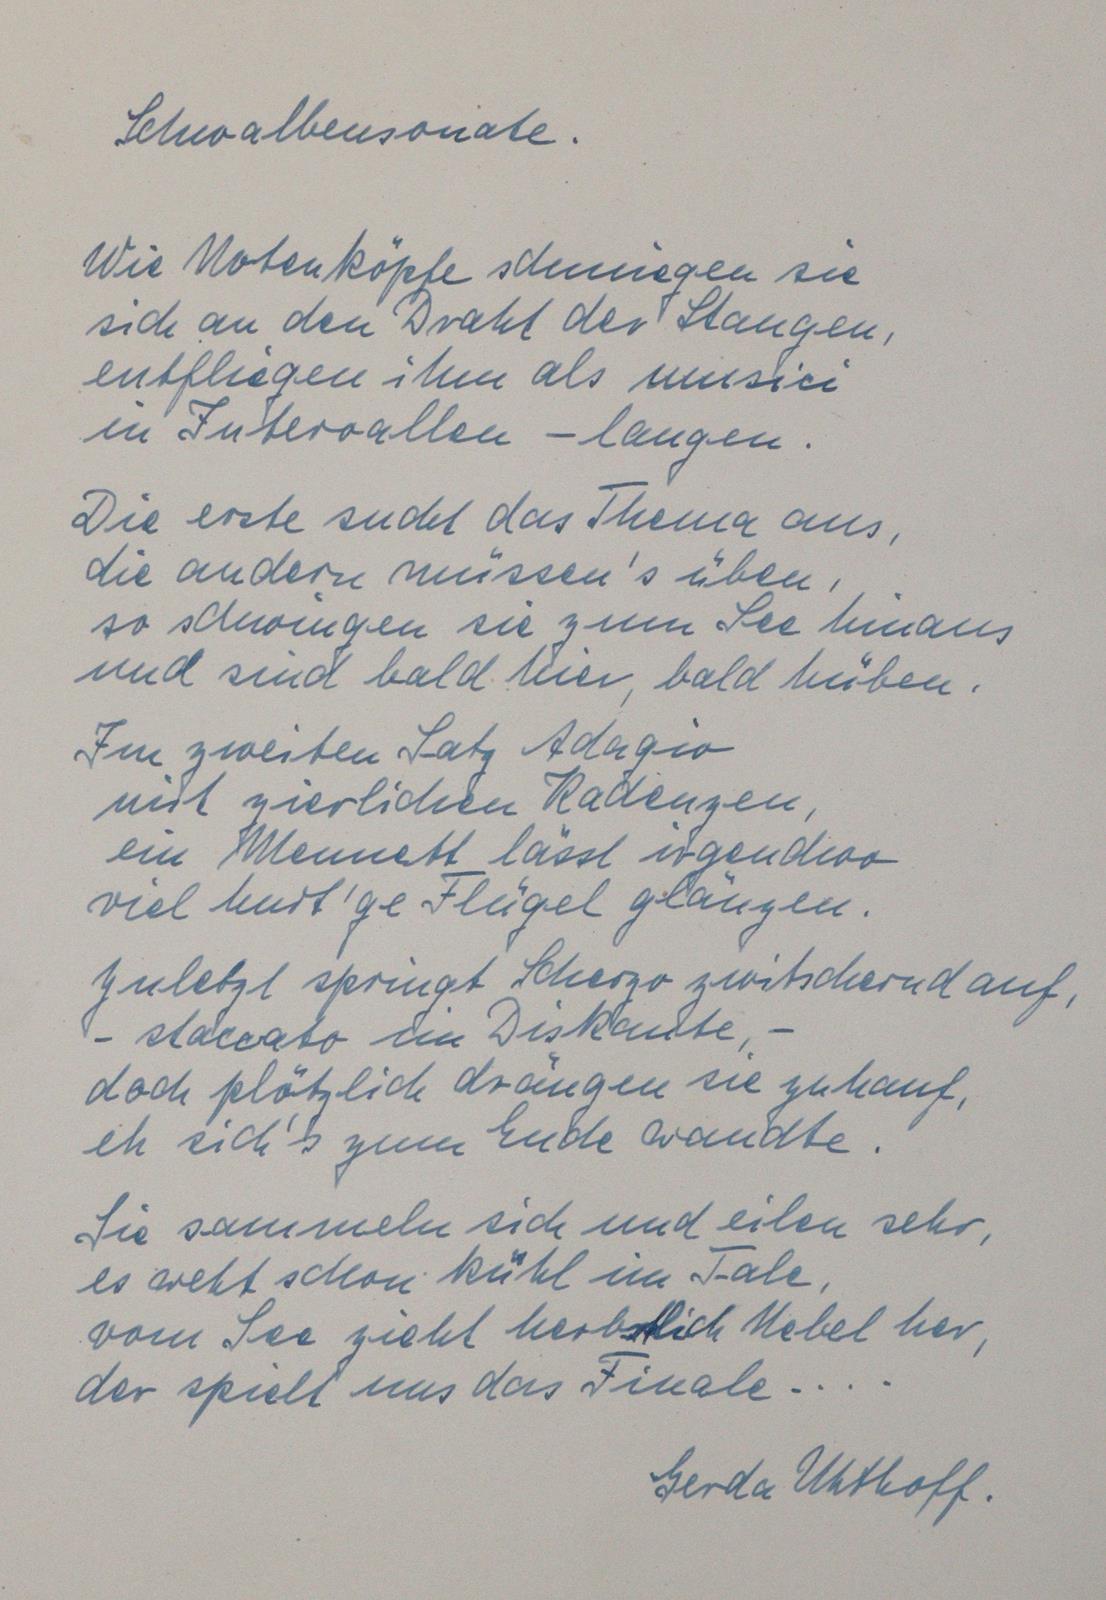 Schwalbensonate.
Wie Notenköpfe schmiegen sie
sich an den Draht der Stangen,
entfliegen ihm als musici
in Intervallen – langen.
Die erste sucht das Thema aus,
die andern müssen's üben,
so schwingen sie zum See hinaus
und sind bald hier, bald hüben.
Im zweiten Satz Adagio
mit zierlichen Kadenzen,
ein Menuett lässt irgendwo
viel hurt'ge Flügel glänzen.
Zuletzt springt Scherzo zwitschernd auf,
– staccato im Diskante, –
doch plötzlich drängen sie zuhauf,
eh sich's zum Ende wandte.
Sie sammeln sich und eilen sehr,
es weht schon kühl im Tale,
vom See zieht herbstlich Nebel her,
der spielt uns das Finale....
Gerda Uhthoff.